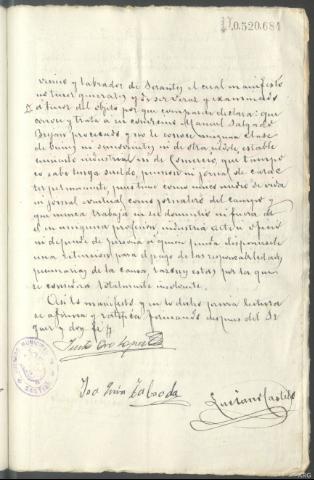 0.520.681
vecino y labrador de Serantes el cual manifestó
no tener generales y de ser veraz y examinado
a tenor del objeto por que comparece declara: que
conoce y trata a su convecino Manuel Salgado
procesado y no le conoce ninguna clase
de bienes ni semovientes ni de otra índole, estable
cimiento industrial ni de Comercio, que tampo
co sabe tenga sueldo, pension ni jornal de carác
ter permanente, pues tiene como único medio de vida
ni jornal eventual como jornalero del campo y
que nunca trabaja en su domicilio ni fuera de
el en ninguna profesion, industria arte u oficio
ni depende de persona a quien pueda
una retencion para el pago de las responsabilidades
pecuniarias de la causa, razones estas por las que
se considera totalmente insolvente.
Asi lo manifestó y en lo dicho previa lectura
se afirma y ratifica firmando despues del Sr
Juez y doy fe.
Luciano Castillo